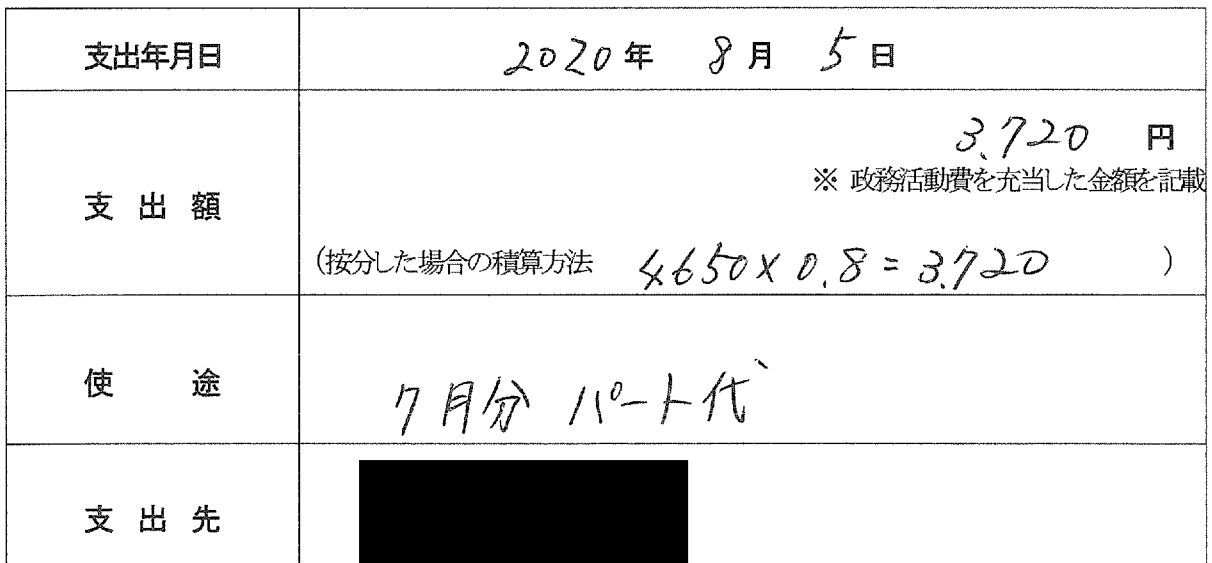 支出年月日 2020年 8月 5日
3,720 円
※ 政務活動費を充当した金額を記載
支出額
(按分した場合の積算方法 4,650×0.8=3,720 )
使途 7月分 パート代
支出先